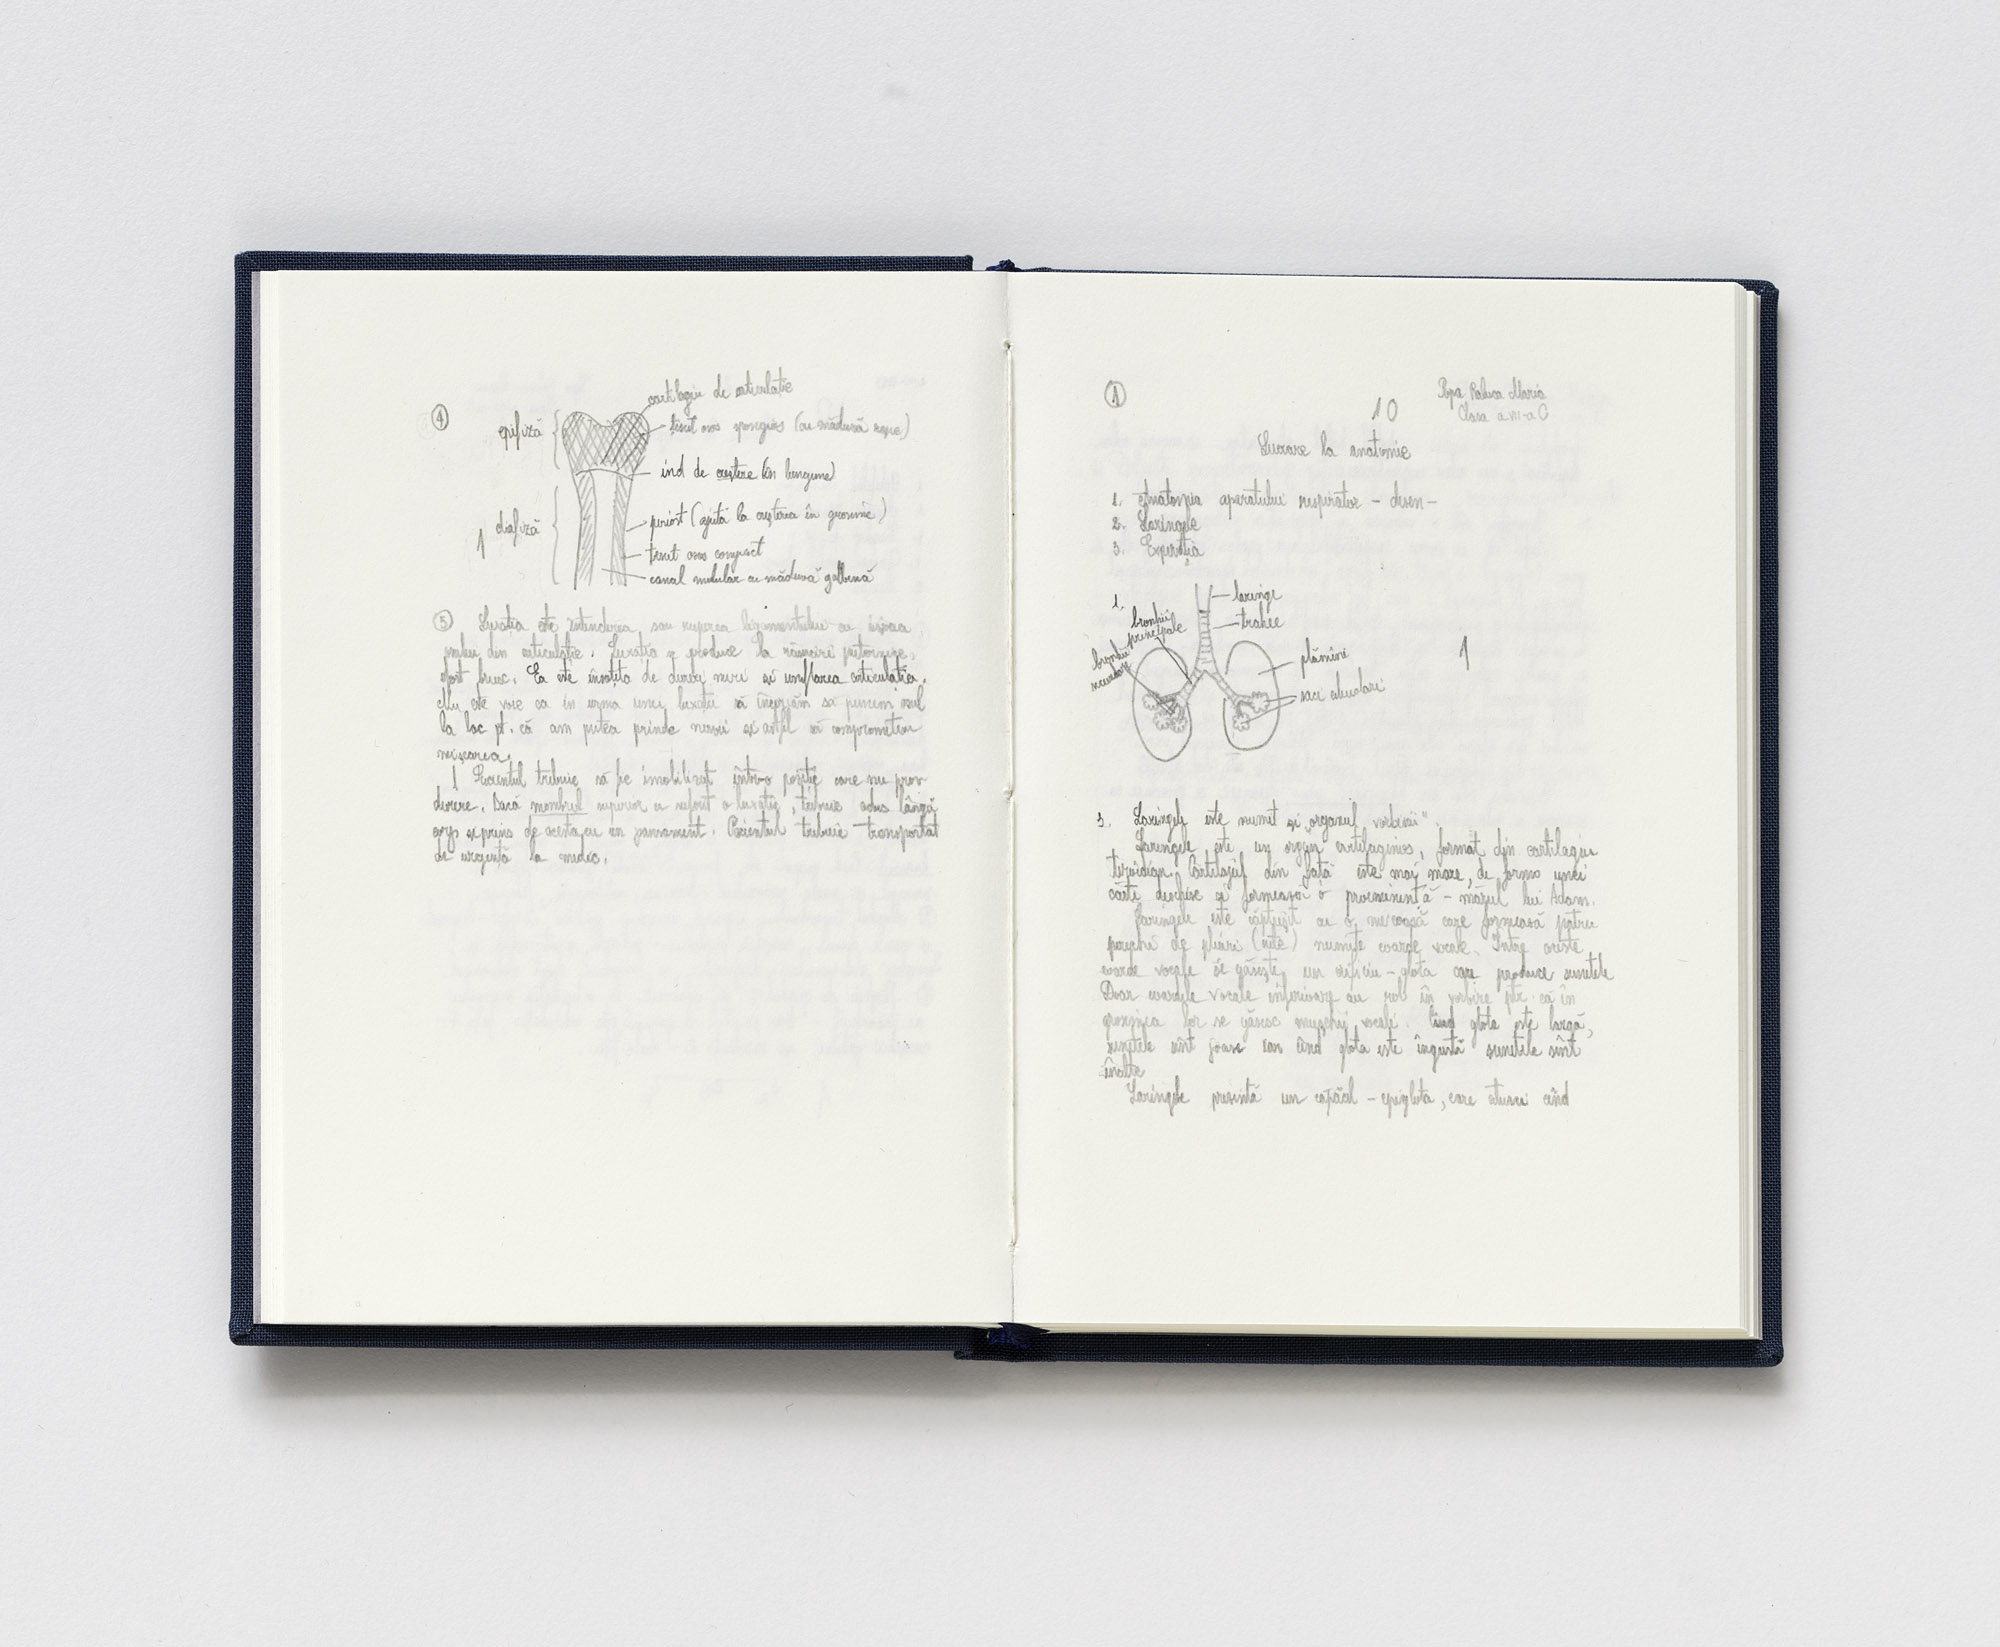 ④
cartilagiu de articulație
epifiză
țesut osos spongios (cu măduvă roșie)
ind de creștere (în lungime)
diafiză
periost (ajută la creșterea în grosime)
1
țesut osos compact
canal medular cu măduvă galbenă
⑤ Luxația este întinderea, sau ruperea ligamentului cu ieșirea
din articulație. Luxația se produce la
efort brusc. Ea este însoțită de dureri mari și umflarea articulației.
Nu este voie ca în urma unei luxații să încercăm să punem osul
la loc pt. că am putea prinde nervii și astfel să compromitem
mișcarea.
1 Pacientul trebuie să fie imobilizat într-o poziție care nu prov.
durere. Dacă membrul superior a suferit o luxație, trebuie adus lângă
corp și prins de acesta cu un pansament. Pacientul trebuie transportat
de urgență la medic.
①
Popa Raluca Maria
Clasa a VII-a C
10
Lucrare la anatomie
1. Anatomia aparatului respirator - desen -
2. Laringele
3. Expirația
1.
laringe
trahee
bronhii
principale
bronhii
secundare
plămîni
saci alveolari
1
3. Laringele este numit și „organul vorbirii".
Laringele este un organ cartilaginos, format din cartilagiu
tiroidian. Cartilajul din față este mai mare, de forma unei
cărți deschise și formează o proeminență - mărul lui Adam.
Laringele este căptușit cu o mucoasă care formează patru
perechi de pliuri (cute) numite coarde vocale. Între aceste
coarde vocale se găsește un orificiu - glota care produce sunetele
Doar coardele vocale inferioare au rol în vorbire ptr. că în
grosimea lor se găsesc mușchii vocali. Cînd glota este largă,
sunetele sînt joase iar cînd glota este îngustă sunetele sînt
înalte
Laringele prezintă un căpăcel - epiglota, care atunci cînd